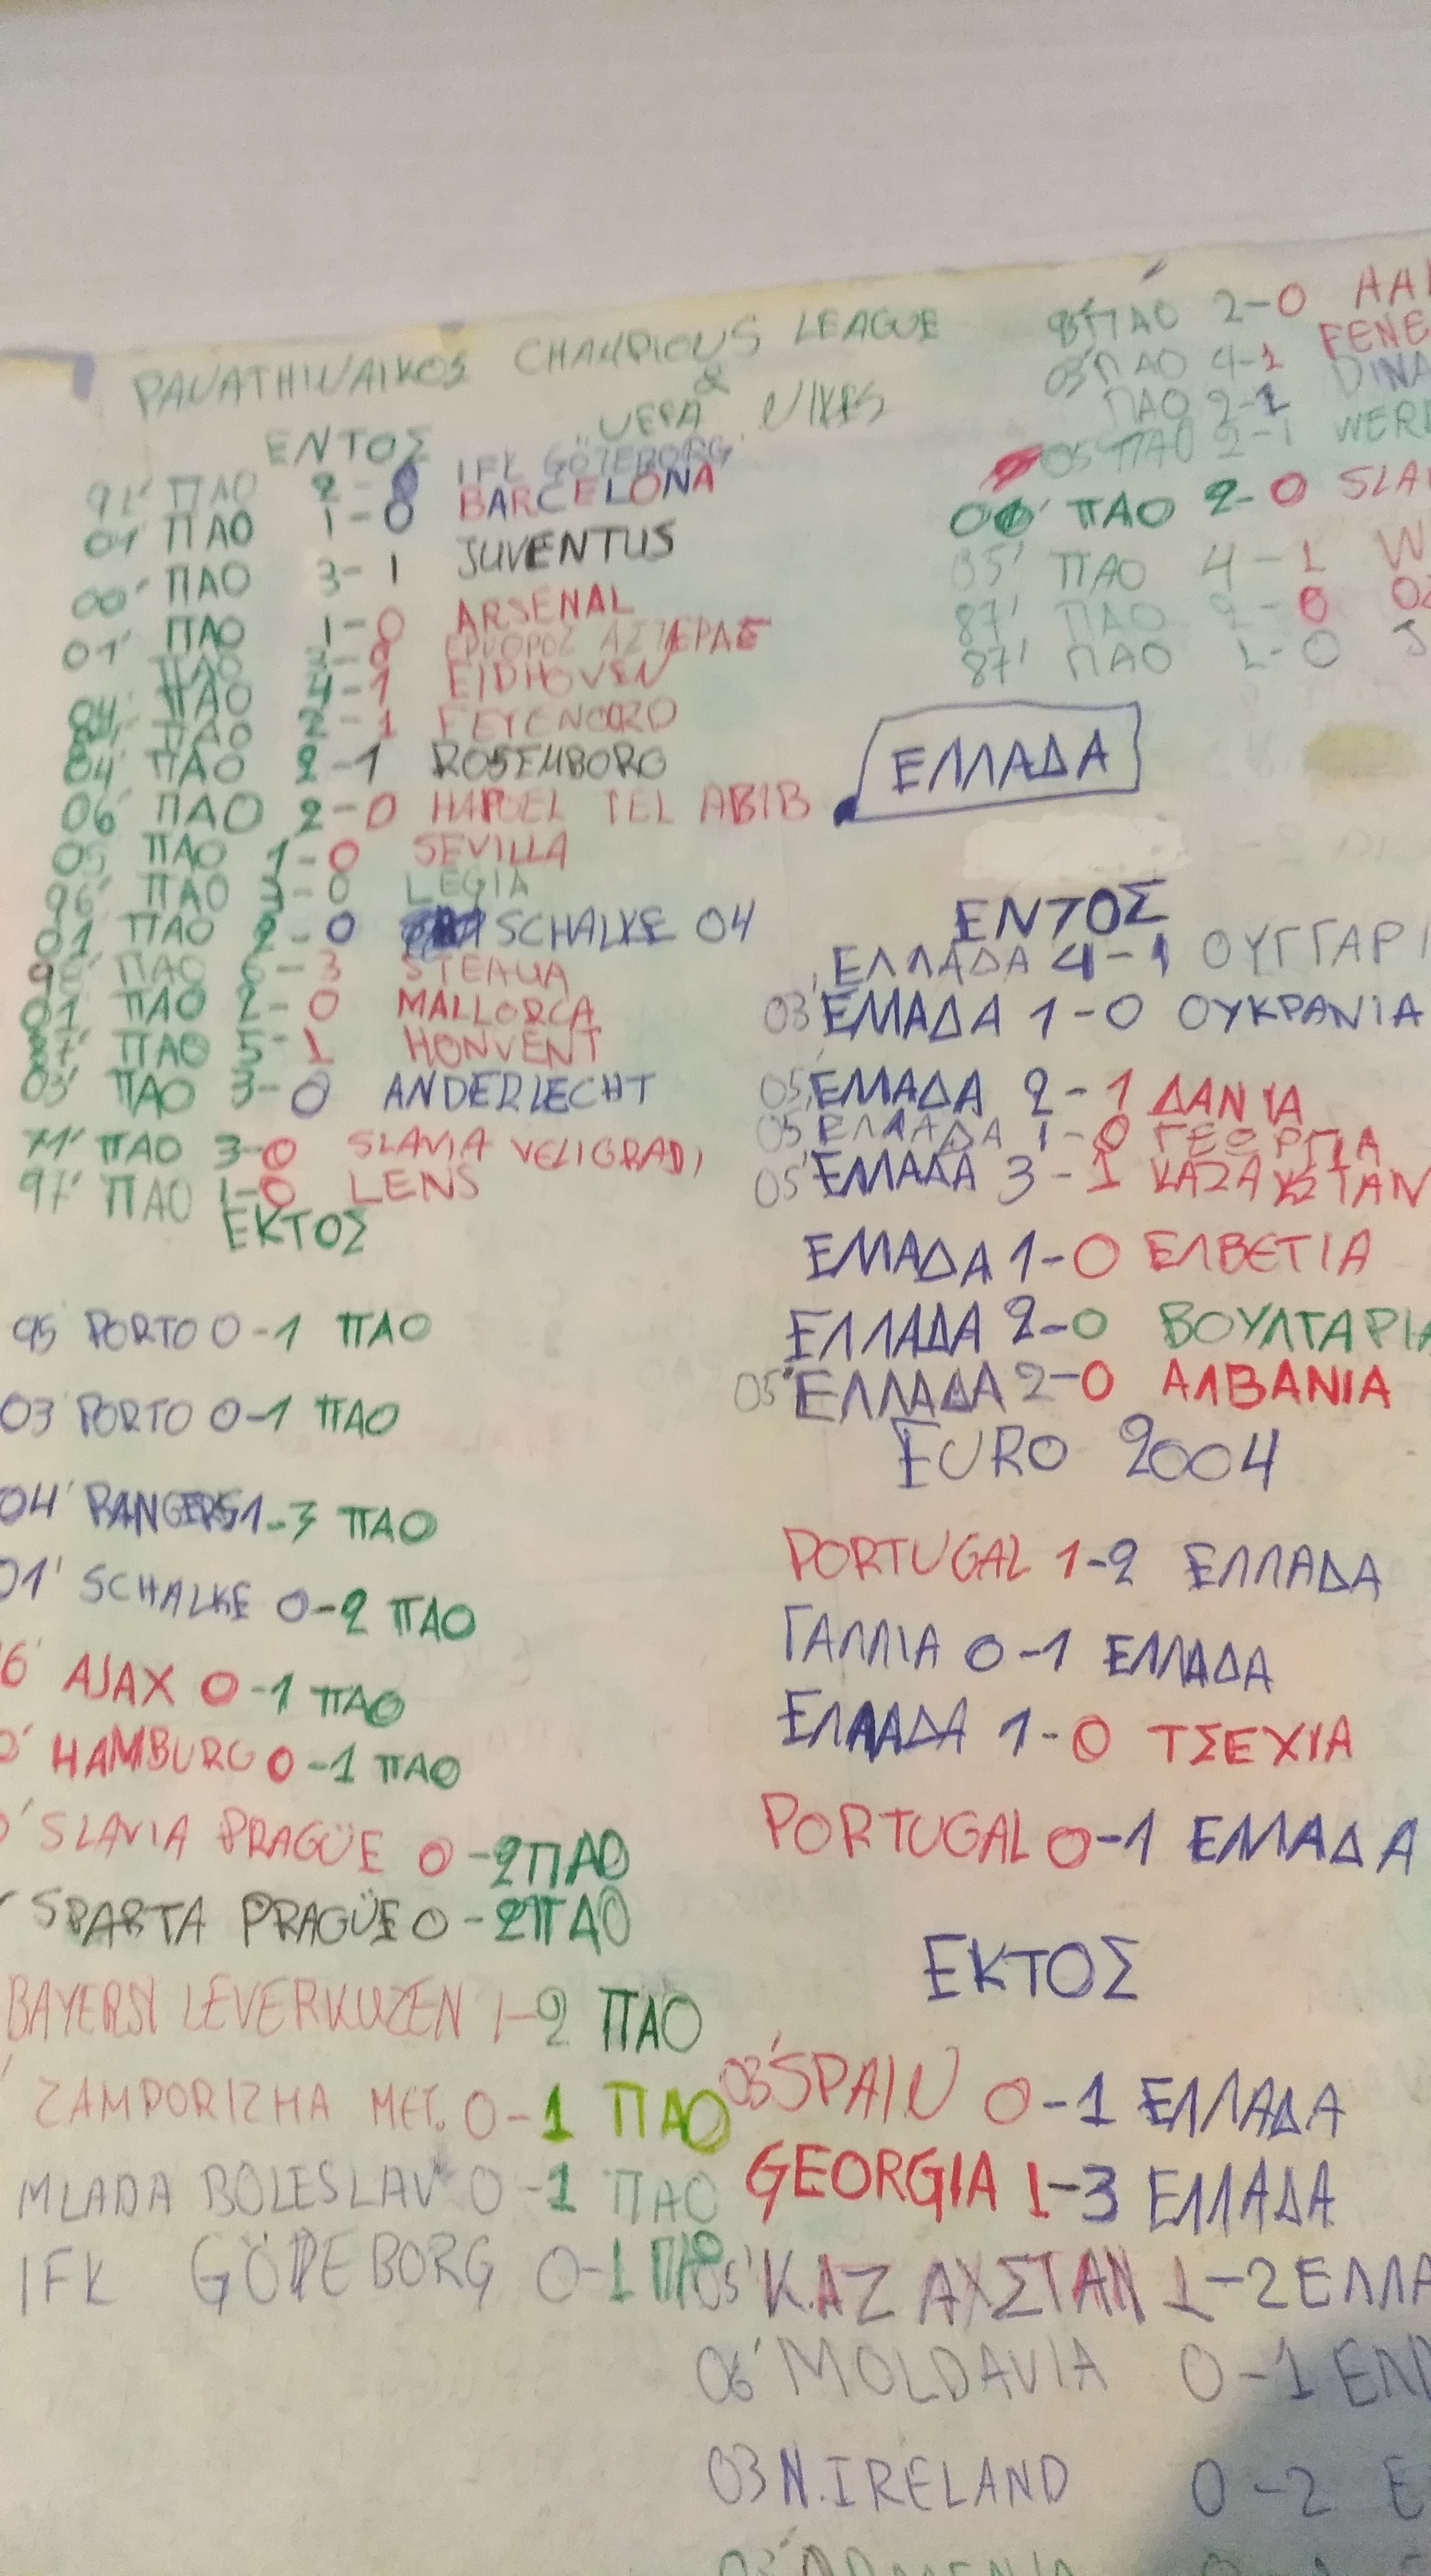 PANATHINAIKOS CHAMPIONS LEAGUE
&
UEFA NIKES
ΕΝΤΟΣ
91' ΠΑΟ 2-0 IFK GÖTEBORG
01' ΠΑΟ 1-0 BARCELONA
00' ΠΑΟ 3-1 JUVENTUS
01' ΠΑΟ 1-0 ARSENAL
ΠΑΟ ΕΡΥΘΡΟΣ ΑΣΤΕΡΑΣ
04' ΠΑΟ 4-1 EIDHOVEN
ΠΑΟ 2-1 FEYENOORD
04' ΠΑΟ 2-1 ROSEMBORG
06' ΠΑΟ 2-0 HAPOEL TEL ABIB
05' ΠΑΟ 1-0 SEVILLA
96' ΠΑΟ 3-0 LEGIA
01 ΠΑΟ 2-0 SCHALKE 04
ΠΑΟ 6-3 STEAUA
01' ΠΑΟ 2-0 MALLORCA
87' ΠΑΟ 5-1 HONVENT
03' ΠΑΟ 3-0 ANDERLECHT
71' ΠΑΟ 3-0 SLAVIA VELIGRADI
97' ΠΑΟ 1-0 LENS
ΕΚΤΟΣ
95' PORTO 0-1 ΠΑΟ
03' PORTO 0-1 ΠΑΟ
04' RANGERS 1-3 ΠΑΟ
01' SCHALKE 0-2 ΠΑΟ
6' AJAX 0-1 ΠΑΟ
HAMBURG 0-1 ΠΑΟ
SLAVIA PRAGÜE 0-2 ΠΑΟ
SPARTA PRAGÜE 0-2 ΠΑΟ
BAYERN LEVERKUZEN 1-2 ΠΑΟ
ZAMPORIZHA MET. 0-1 ΠΑΟ
MLADA BOLESLAV 0-1 ΠΑΟ
IFK GÖTEBORG 0-1 ΠΑΟ
ΠΑΟ 2-0 AA
03' ΠΑΟ 4-1 FENE
ΠΑΟ 2-1 DINA
05' ΠΑΟ 2-1 WERD
00' ΠΑΟ 2-0 SLA
85' ΠΑΟ 4-1 W
87' ΠΑΟ 2-0
87' ΠΑΟ 1-0 J
ΕΛΛΑΔΑ
ΕΝΤΟΣ
ΕΛΛΑΔΑ 4-1 ΟΥΓΓΑΡΙ
03' ΕΛΛΑΔΑ 1-0 ΟΥΚΡΑΝΙΑ
05' ΕΛΛΑΔΑ 2-1 ΔΑΝΙΑ
05 ΕΛΛΑΔΑ 1-0 ΓΕΩΡΓΙΑ
05' ΕΛΛΑΔΑ 3-1 ΚΑΖΑΚΣΤΑΝ
ΕΛΛΑΔΑ 1-0 ΕΛΒΕΤΙΑ
ΕΛΛΑΔΑ 2-0 ΒΟΥΛΓΑΡΙΑ
05' ΕΛΛΑΔΑ 2-0 ΑΛΒΑΝΙΑ
EURO 2004
PORTUGAL 1-2 ΕΛΛΑΔΑ
ΓΑΛΛΙΑ 0-1 ΕΛΛΑΔΑ
ΕΛΛΑΔΑ 1-0 ΤΣΕΧΙΑ
PORTUGAL 0-1 ΕΛΛΑΔΑ
ΕΚΤΟΣ
03' SPAIN 0-1 ΕΛΛΑΔΑ
GEORGIA 1-3 ΕΛΛΑΔΑ
05' ΚΑΖΑΧΣΤΑΝ 1-2 ΕΛΛΑ
06' MOLDAVIA 0-1 ΕΛΛ
03 N.IRELAND 0-2 Ε
03' ARMENIA